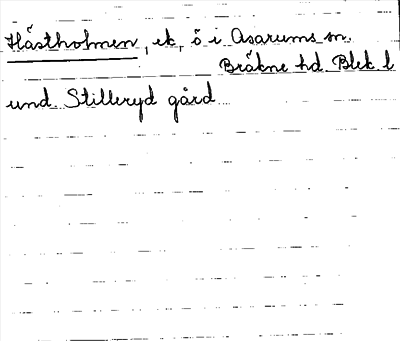 Hästholmen, ek, ö i Asarums sn.
Bräkne hd. Blek l
und. Stilleryd gård